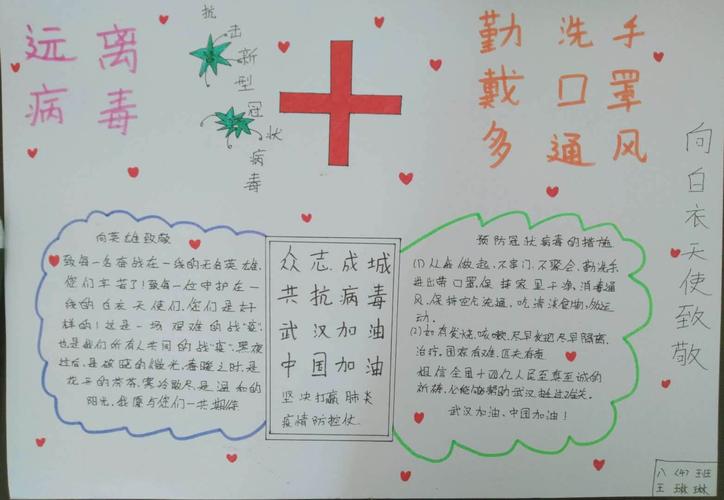 远离
病毒
抗击新型冠状病毒
勤洗手
戴口罩
多通风
向白衣天使致敬
向英雄致敬
致每一名奋战在一线的无名英雄，
您们辛苦了！致每一位守护在一
线的白衣天使们，您们是好
样的！这是一场艰难的战"疫"，
也是我们所有人共同的战"疫"。黑夜
过后，是破晓的微光，春暖之时是
花开的芬芳，寒冷散尽是温和的
阳光，我愿与您们一共期待
众志成城
共抗病毒
武汉加油
中国加油
坚决打赢肺炎
疫情防控仗.
预防冠状病毒的措施
(1)从我做起，不串门，不聚会，勤洗手
进出带口罩，保持家里干净，消毒通
风，保持空气流通，吃清淡食物，多运
动.
(2)如有发烧，咳嗽，尽早发现尽早隔离，
治疗。国家有难，匹夫有责
相信全国十四亿人民至尊至诚的
祈祷，必能够帮助武汉挺过难关.
武汉加油、中国加油！
八（4）班
王琳琳